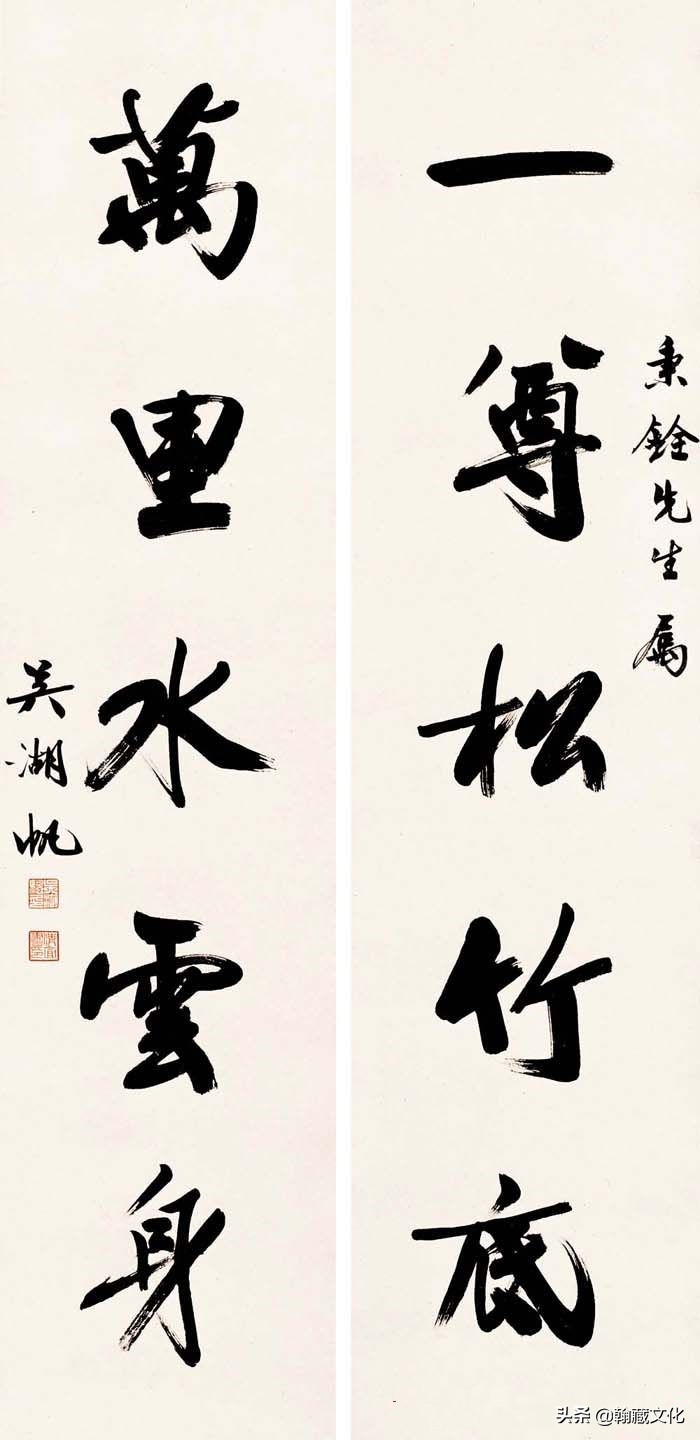 秉銓先生属
一尊松竹底
萬里水雲身
吳湖帆
头条 @翰藏文化